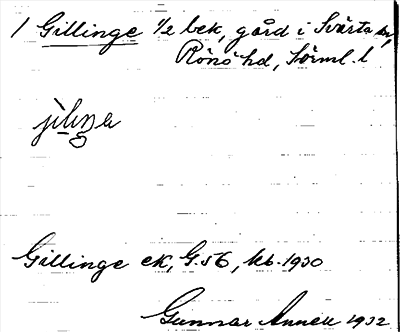 1 Gillinge 1/2 bek, gård i Svärta sn,
Rönö hd, Sörml. l
Gillinge ek, G.56, kb. 1930
Gunnar Annell 1932